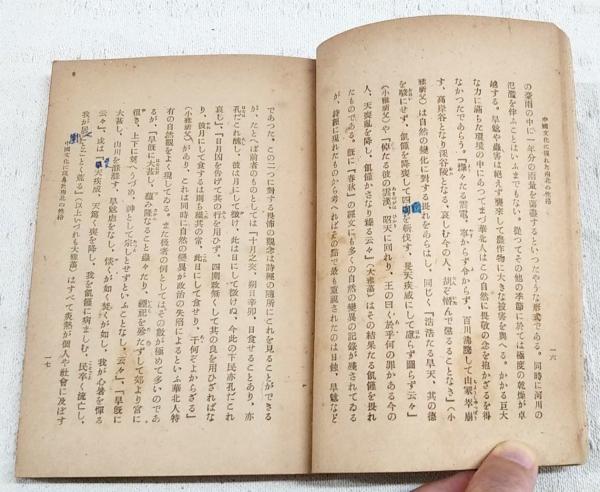 中國文化に現れた南北の性格
一六
の豪雨の中に一年分の雨量を蕩盡するといつたやうな形式である。同時に河川の
氾濫を伴ふことはいふまでもない。從つてその他の季節に於ては極度の乾燥が卓
越する。旱魃や蟲害は絶えず襲來して農作物に大きな被害を與へる。かかる巨大
な力に滿ちた環境の中にあつてまづ華北人はこの自然に畏敬の念を抱かざるを得
なかつたであらう。『爗々たる雷電、寧からず令からず、百川沸騰して山冢崒崩
す、高岸谷となり深谷陵となる、哀しむ今の人、胡ぞ憯んで懲ることなき』(小
雅節父)は自然の變化に對する畏れをあらはし、同じく『浩浩たる旻天、其の德
を駿にせず、飢饉を降喪して四國を斬伐す、旻天疾威にして慮らず圖らず云々』
(小雅節父)や『倬たる彼の雲漢、昭天に回れり、王の曰く於乎何の罪かある今の
人、天喪亂を降し、飢饉かさなり臻る云々』(大雅蕩)はその結果たる飢饉を畏れ
たものである。既に『春秋』の經文にも多くの自然の變異の記錄が殘されてゐる
が、詩經に現れたものから考へればその點で最も重視されたのは日蝕、旱魃など
であつた。この二つに對する畏怖の觀念は詩經の隨所にこれを見ることができる
が、たとへば前者のものとしては『十月之交、朔日辛卯、日食せることあり、亦
孔だこれ醜し、彼は月にして微け、此は日にして微けぬ、今此の下民亦孔だこれ
哀し』、『日月凶を告げて其の行を用ひず、四國政無くして其の良を用ひざればな
り、彼月にして食するは則ち維其の常、此日にして食せり、于何ぞよからざる』
(小雅節父)があり、これは同時に自然の變異が政治の失宿によるといふ華北人特
有の自然觀をよく現してゐる。また後者の例としてはその數が極めて多いのであ
るが、『旱既に大甚し、蘊み隆なること蟲々たり、禋祀を殄たずして郊より宮に
徂き、上下に奠へうづめ、神として宗しとせずといふことなし、云々』、『旱既に
大甚し、山川を滌滌す、旱魃虐をなし、惔くが如く焚くが如し、我が心暑を憚る
云々』、或は『旻天疾威、天篤く喪を降し、我を飢饉に病ましむ、民卒く流亡し、
我が居圉ことごとく荒る』(以上いづれも大雅蕩)はすべて炎熱が個人や社會に及ぼす
中國文化に現れた南北の性格
一七